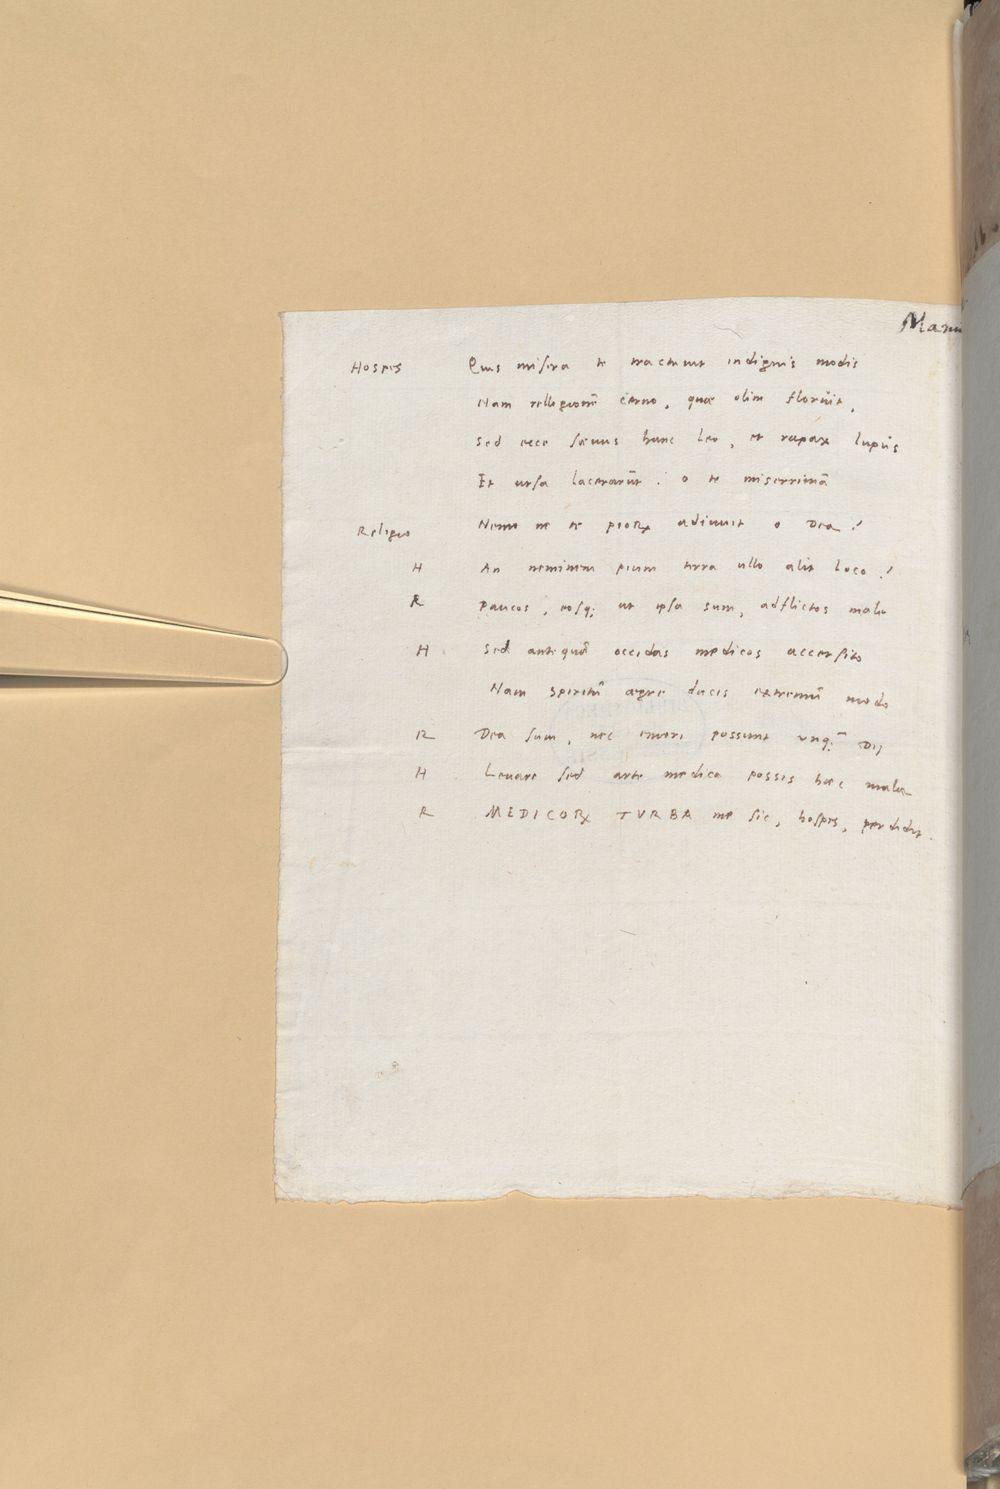 Manu
Hospes Quis misera te tractavit indignis modis
Nam relligionē cerno, quæ olim floruit,
Sed ecce sævus hunc leo, et rapax lupus
Et ursa lacerarūt : o te miserrimā
Religio Nemo ne te pioꝝ adiuuit o Dea ?
H An neminem pium terra ullo alit loco ?
R Paucos, eosq; ut ipsa sum, adflictos male
H Sed antequā occidas medicos accersito
Nam spiritū ægre ducis extremū modo
R Dea sum, nec emori possunt unq̄ Dij
H Leuare sed arte medica possis hæc mala
R MEDICOꝝ TVRBA me sic, hospes, perdidit.